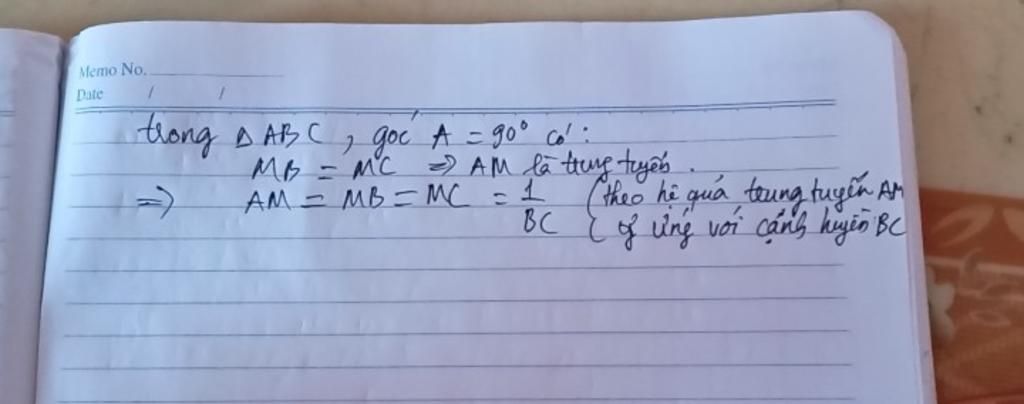 Memo No.
Date / /
trong Δ ABC, góc A = 90° có:
MB = MC => AM là trung tuyến.
=> AM = MB = MC = 1/BC (theo hệ quả trung tuyến AM
ứng với cạnh huyền BC